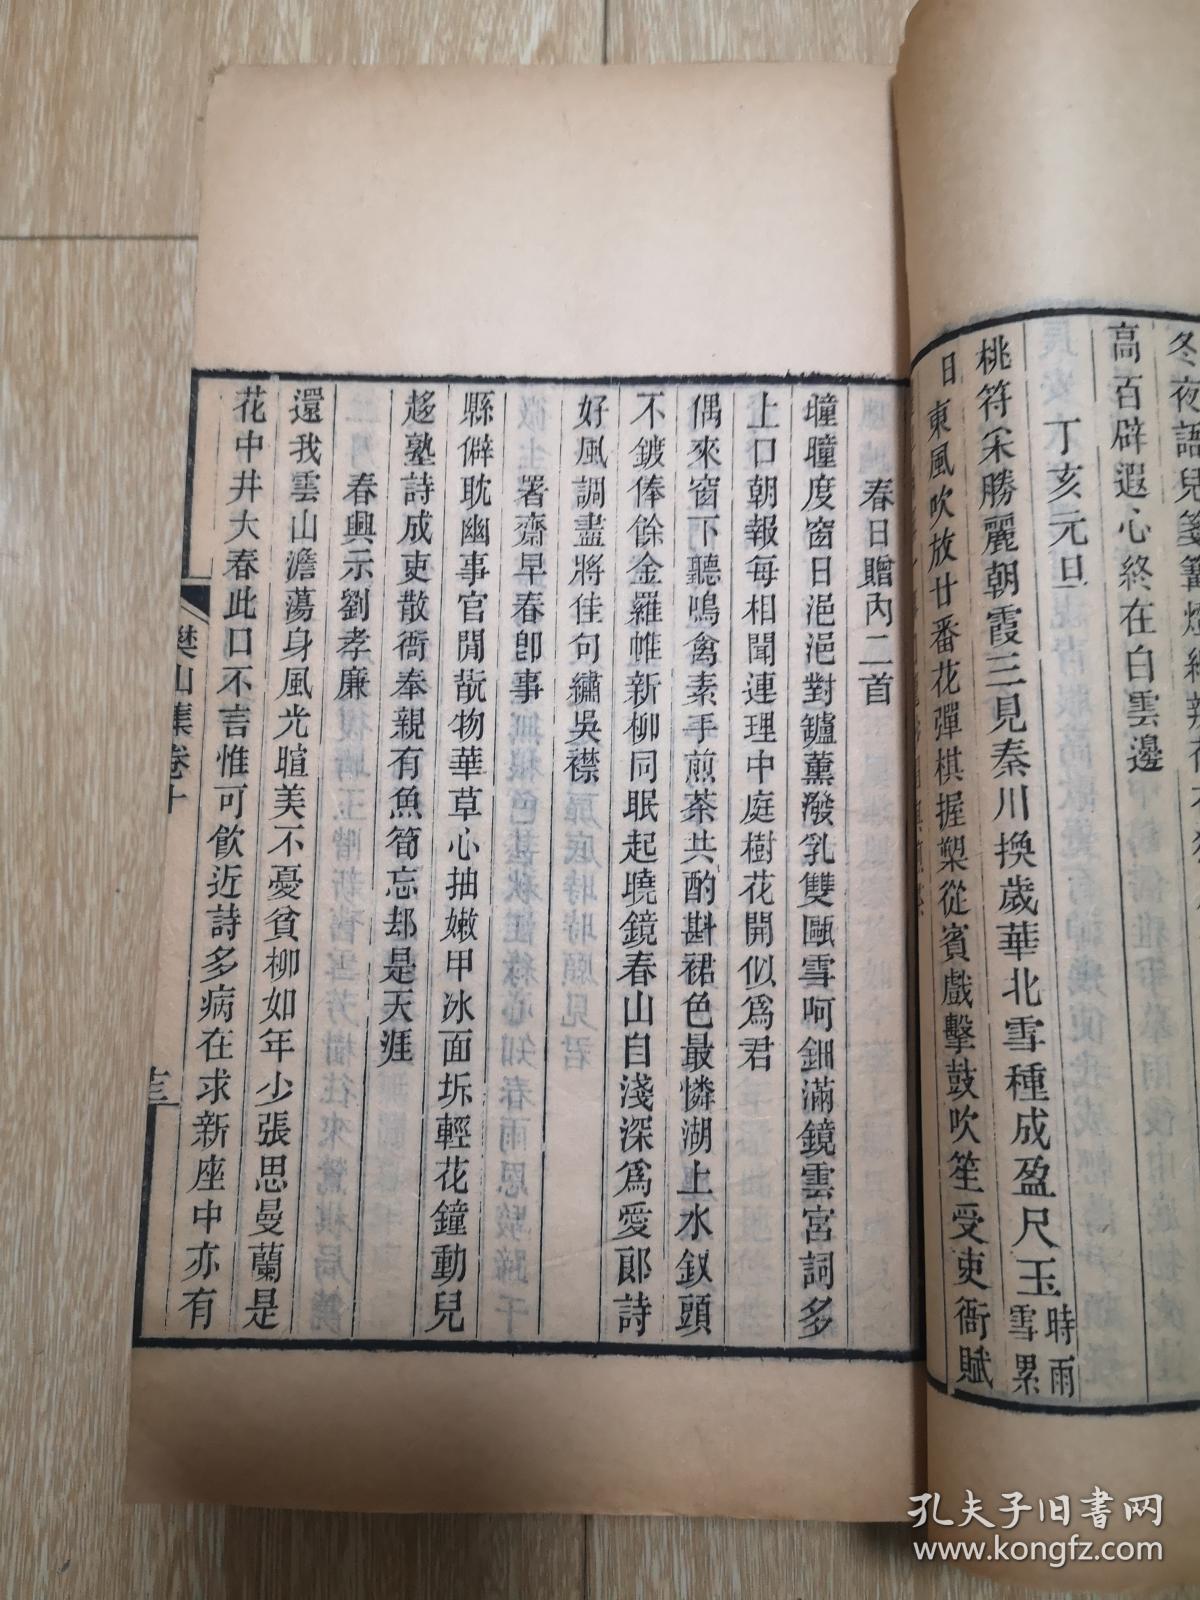 冬夜語兒箋篝燈細辨
高百辟遐心終在白雲邊
丁亥元旦
桃符綵勝麗朝霞三見秦川換歲華北雪種成盈尺玉時雨雪累
日東風吹放廿番花彈棋握槊從賓戲擊鼓吹笙受吏衙賦
春日贈內二首
曈曈度窗日浥浥對鑪薰潑乳雙甌雪呵鈿滿鏡雲宮詞多
上口朝報每相聞連理中庭樹花開似爲君
偶來窗下聽鳴禽素手煎茶共酌斟裙色最憐湖上水釵頭
不鍍俸餘金羅帷新柳同眠起曉鏡春山自淺深爲愛郎詩
好風調盡將佳句繡吳襟
署齋早春卽事
縣僻耽幽事官閒翫物華草心抽嫩甲冰面坼輕花鐘動兒
趍塾詩成吏散衙奉親有魚筍忘却是天涯
春興示劉孝廉
還我雲山澹蕩身風光暄美不憂貧柳如年少張思曼蘭是
花中井大春此口不言惟可飲近詩多病在求新座中亦有
樊山集卷十
十三
孔夫子旧书网
www.kongfz.com